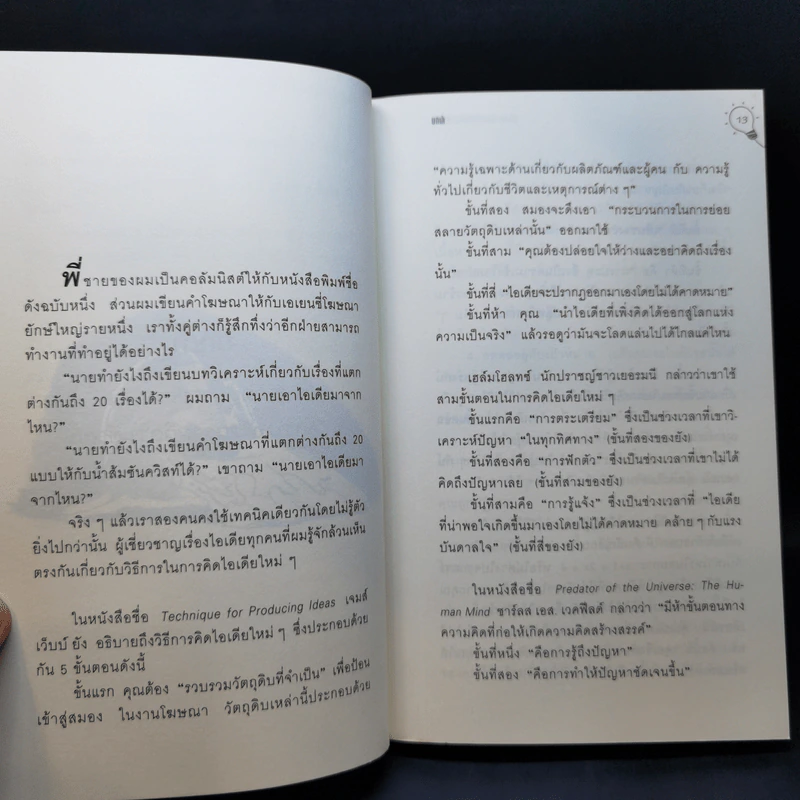 พี่ชายของผมเป็นคอลัมนิสต์ให้กับหนังสือพิมพ์ชื่อ
ดังฉบับหนึ่ง ส่วนผมเขียนคำโฆษณาให้กับเอเยนซี่โฆษณา
ยักษ์ใหญ่รายหนึ่ง เราทั้งคู่ต่างก็รู้สึกทึ่งว่าอีกฝ่ายสามารถ
ทำงานที่ทำอยู่ได้อย่างไร
“นายทำยังไงถึงเขียนบทวิเคราะห์เกี่ยวกับเรื่องที่แตก
ต่างกันถึง 20 เรื่องได้?” ผมถาม “นายเอาไอเดียมาจาก
ไหน?”
“นายทำยังไงถึงเขียนคำโฆษณาที่แตกต่างกันถึง 20
แบบให้กับน้ำส้มซันควิสท์ได้?” เขาถาม “นายเอาไอเดียมา
จากไหน?”
จริง ๆ แล้วเราสองคนคงใช้เทคนิคเดียวกันโดยไม่รู้ตัว
ยิ่งไปกว่านั้น ผู้เชี่ยวชาญเรื่องไอเดียทุกคนที่ผมรู้จักล้วนเห็น
ตรงกันเกี่ยวกับวิธีการในการคิดไอเดียใหม่ ๆ
ในหนังสือชื่อ Technique for Producing Ideas เจมส์
เว็บบ์ ยัง อธิบายถึงวิธีการคิดไอเดียใหม่ ๆ ซึ่งประกอบด้วย
กัน 5 ขั้นตอนดังนี้
ขั้นแรก คุณต้อง “รวบรวมวัตถุดิบที่จำเป็น” เพื่อป้อน
เข้าสู่สมอง ในงานโฆษณา วัตถุดิบเหล่านี้ประกอบด้วย
13
“ความรู้เฉพาะด้านเกี่ยวกับผลิตภัณฑ์และผู้คน กับ ความรู้
ทั่วไปเกี่ยวกับชีวิตและเหตุการณ์ต่าง ๆ”
ขั้นที่สอง สมองจะดึงเอา “กระบวนการในการย่อย
สลายวัตถุดิบเหล่านั้น” ออกมาใช้
ขั้นที่สาม “คุณต้องปล่อยใจให้ว่างและอย่าคิดถึงเรื่อง
นั้น”
ขั้นที่สี่ “ไอเดียจะปรากฏออกมาเองโดยไม่ได้คาดหมาย”
ขั้นที่ห้า คุณ “นำไอเดียที่เพิ่งคิดได้ออกสู่โลกแห่ง
ความเป็นจริง” แล้วรอดูว่ามันจะโลดแล่นไปได้ไกลแค่ไหน
เฮล์มโฮลทซ์ นักปราชญ์ชาวเยอรมนี กล่าวว่าเขาใช้
สามขั้นตอนในการคิดไอเดียใหม่ ๆ
ขั้นแรกคือ “การตระเตรียม” ซึ่งเป็นช่วงเวลาที่เขาวิ-
เคราะห์ปัญหา “ในทุกทิศทาง” (ขั้นที่สองของยัง)
ขั้นที่สองคือ “การฟักตัว” ซึ่งเป็นช่วงเวลาที่เขาไม่ได้
คิดถึงปัญหาเลย (ขั้นที่สามของยัง)
ขั้นที่สามคือ “การรู้แจ้ง” ซึ่งเป็นช่วงเวลาที่ “ไอเดีย
ที่น่าพอใจเกิดขึ้นมาเองโดยไม่ได้คาดหมาย คล้าย ๆ กับแรง
บันดาลใจ” (ขั้นที่สี่ของยัง)
ในหนังสือชื่อ Predator of the Universe: The Hu-
man Mind ชาร์ลส เอส. เวคฟีลด์ กล่าวว่า “มีห้าขั้นตอนทาง
ความคิดที่ก่อให้เกิดความคิดสร้างสรรค์”
ขั้นที่หนึ่ง “คือการรู้ถึงปัญหา”
ขั้นที่สอง “คือการทำให้ปัญหาชัดเจนขึ้น”